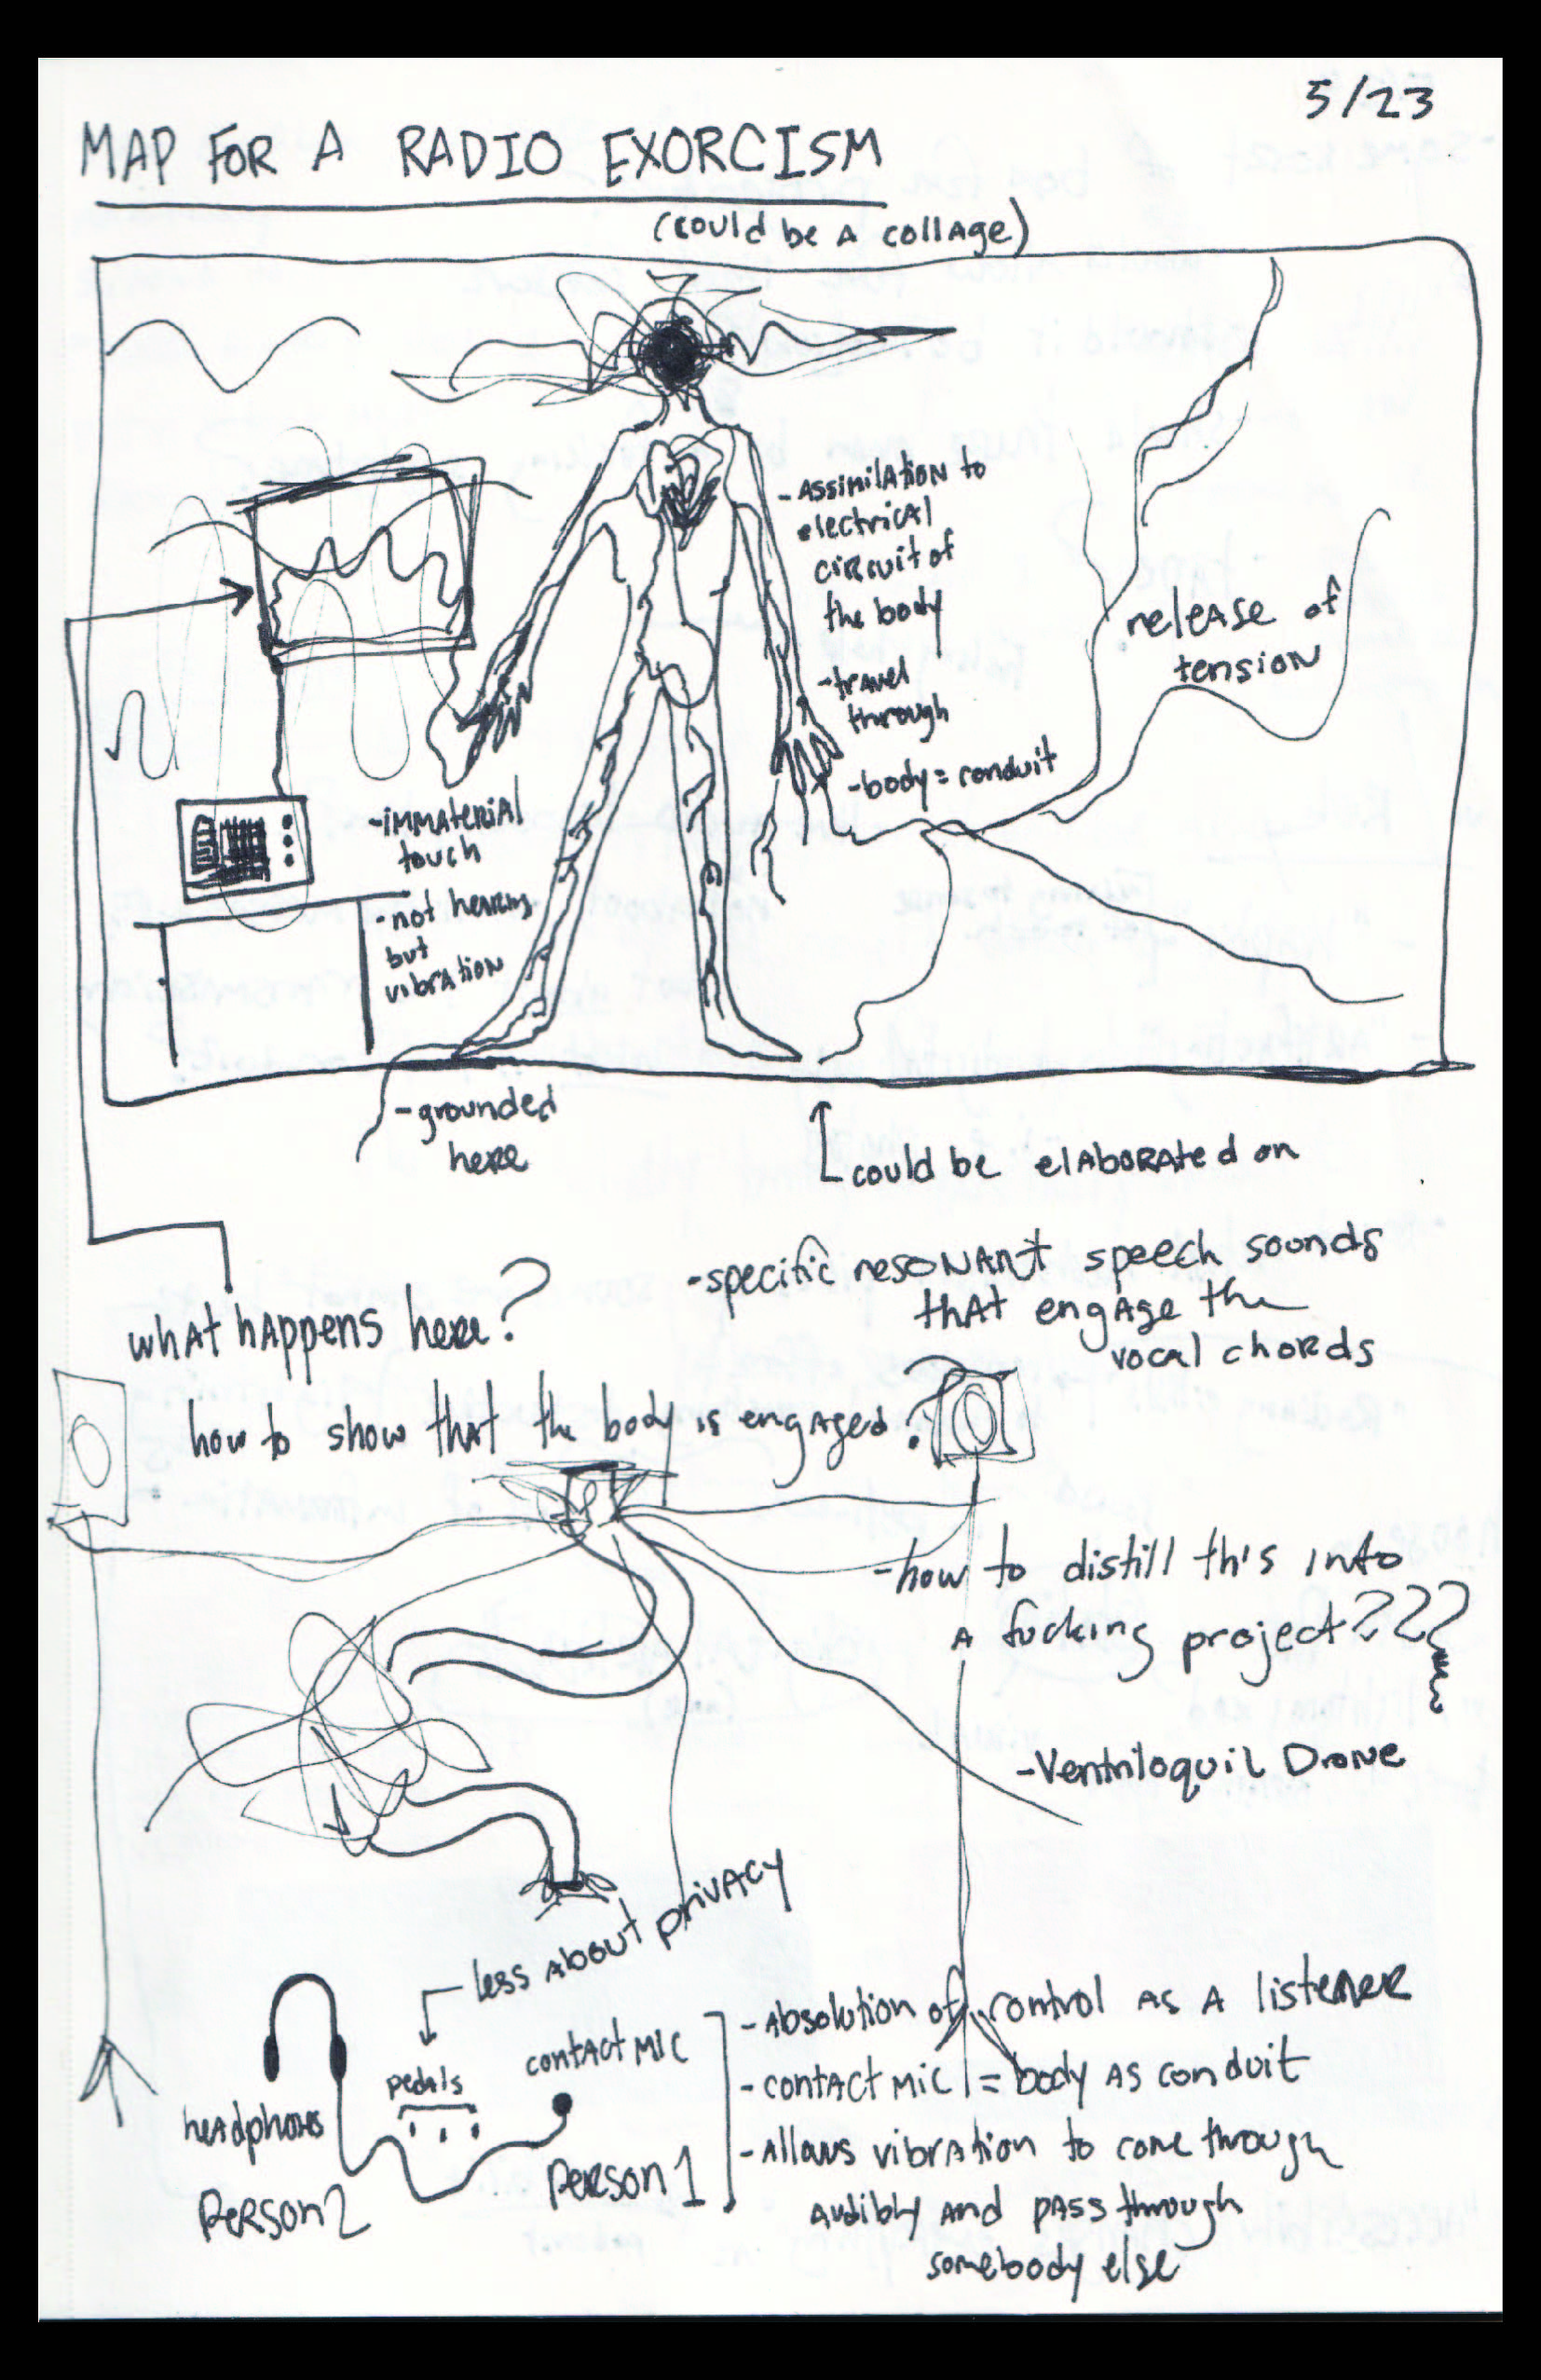 5/23
MAP FOR A RADIO EXORCISM
(could be A collage)
- Assimilation to
electrical
circuit of
the body
- travel
through
- body = conduit
release of
tension
- immaterial
touch
- not hearing
but
vibration
- grounded
here
could be elaborated on
what happens here?
- specific resonant speech sounds
that engage the
vocal chords
how to show that the body is engaged?
- how to distill this into
a fucking project???
- Ventriloquil Drone
less about privacy
pedals
contact mic
headphones
Person 2
Person 1
- Absolution of control as a listener
- contact mic = body as conduit
- Allows vibration to come through
audibly and pass through
somebody else